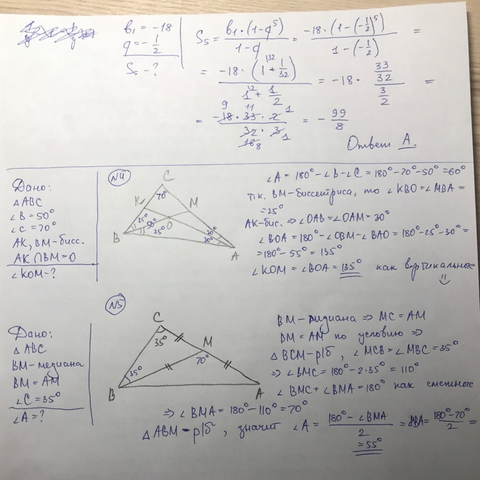 b₁ = -18
q = -1/2
S₅ - ?
S₅ = b₁·(1-q⁵)/(1-q) = -18·(1-(-1/2)⁵)/(1-(-1/2)) =
= -18·(1+1/32)/(1+1/2) = -18 · (33/32)/(3/2) =
= -18·33·2/(32·3) = -99/8
Ответ А.
№4
Дано:
△ABC
∠B=50°
∠C=70°
AK, BM-бисс.
AK∩BM=O
∠KOM-?
C
70°
K
M
O
25°
25°
50°
30°
30°
B
A
∠A = 180°-∠B-∠C = 180°-70°-50°=60°
т.к. BM-биссектриса, то ∠KBO=∠MBA=
=25°
AK-бис. ⇒ ∠OAB=∠OAM=30°
∠BOA=180°-∠OBM-∠BAO=180°-25°-30°=
=180°-55°=135°
∠KOM=∠BOA=135° как вертикальные
№5
Дано:
△ABC
BM-медиана
BM=AM
∠C=35°
∠A=?
C
35°
M
70°
35°
B
A
BM-медиана ⇒ MC=AM
BM=AM по условию ⇒
△BCM-р/б, ∠MCB=∠MBC=35°
⇒ ∠BMC=180°-2·35°=110°
∠BMC+∠BMA=180° как смежные
⇒ ∠BMA=180°-110°=70°
△ABM-р/б, значит ∠A = (180°-∠BMA)/2 = (180°-70°)/2 =
=55°